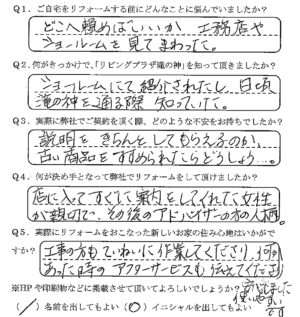 Q1．ご自宅をリフォームする前にどんなことに悩んでいましたか?
どこへ頼めばいいか 工務店や
ショールームを見てまわった。
Q2．何がきっかけで、「リビングプラザ滝の神」を知って頂きましたか?
ショールームにて紹介されたし 日頃
滝の神を通る際 知っていた。
Q3．実際に弊社でご契約を頂く際、どのような不安をお持ちでしたか?
説明をきちんとしてもらえるのか、
古い商品をすすめられたらどうしよう…。
Q4．何が決め手となって弊社にてリフォームをして頂けましたか?
店に入ってすぐに案内をしてくれた女性
が親切で、その後のアドバイザーの方の人柄。
Q5．実際にリフォームをおこなった新しいお家の住み心地はいかがで
すか?
工事の方もていねいに作業してくださり、何か
あった時のアフターサービスも伝えてくださり
安心しました
使いやすい
です
※HPや印刷物などに掲載させて頂いてよろしいでしょうか?
( / )名前を出してもよい (○)イニシャルを出してもよい